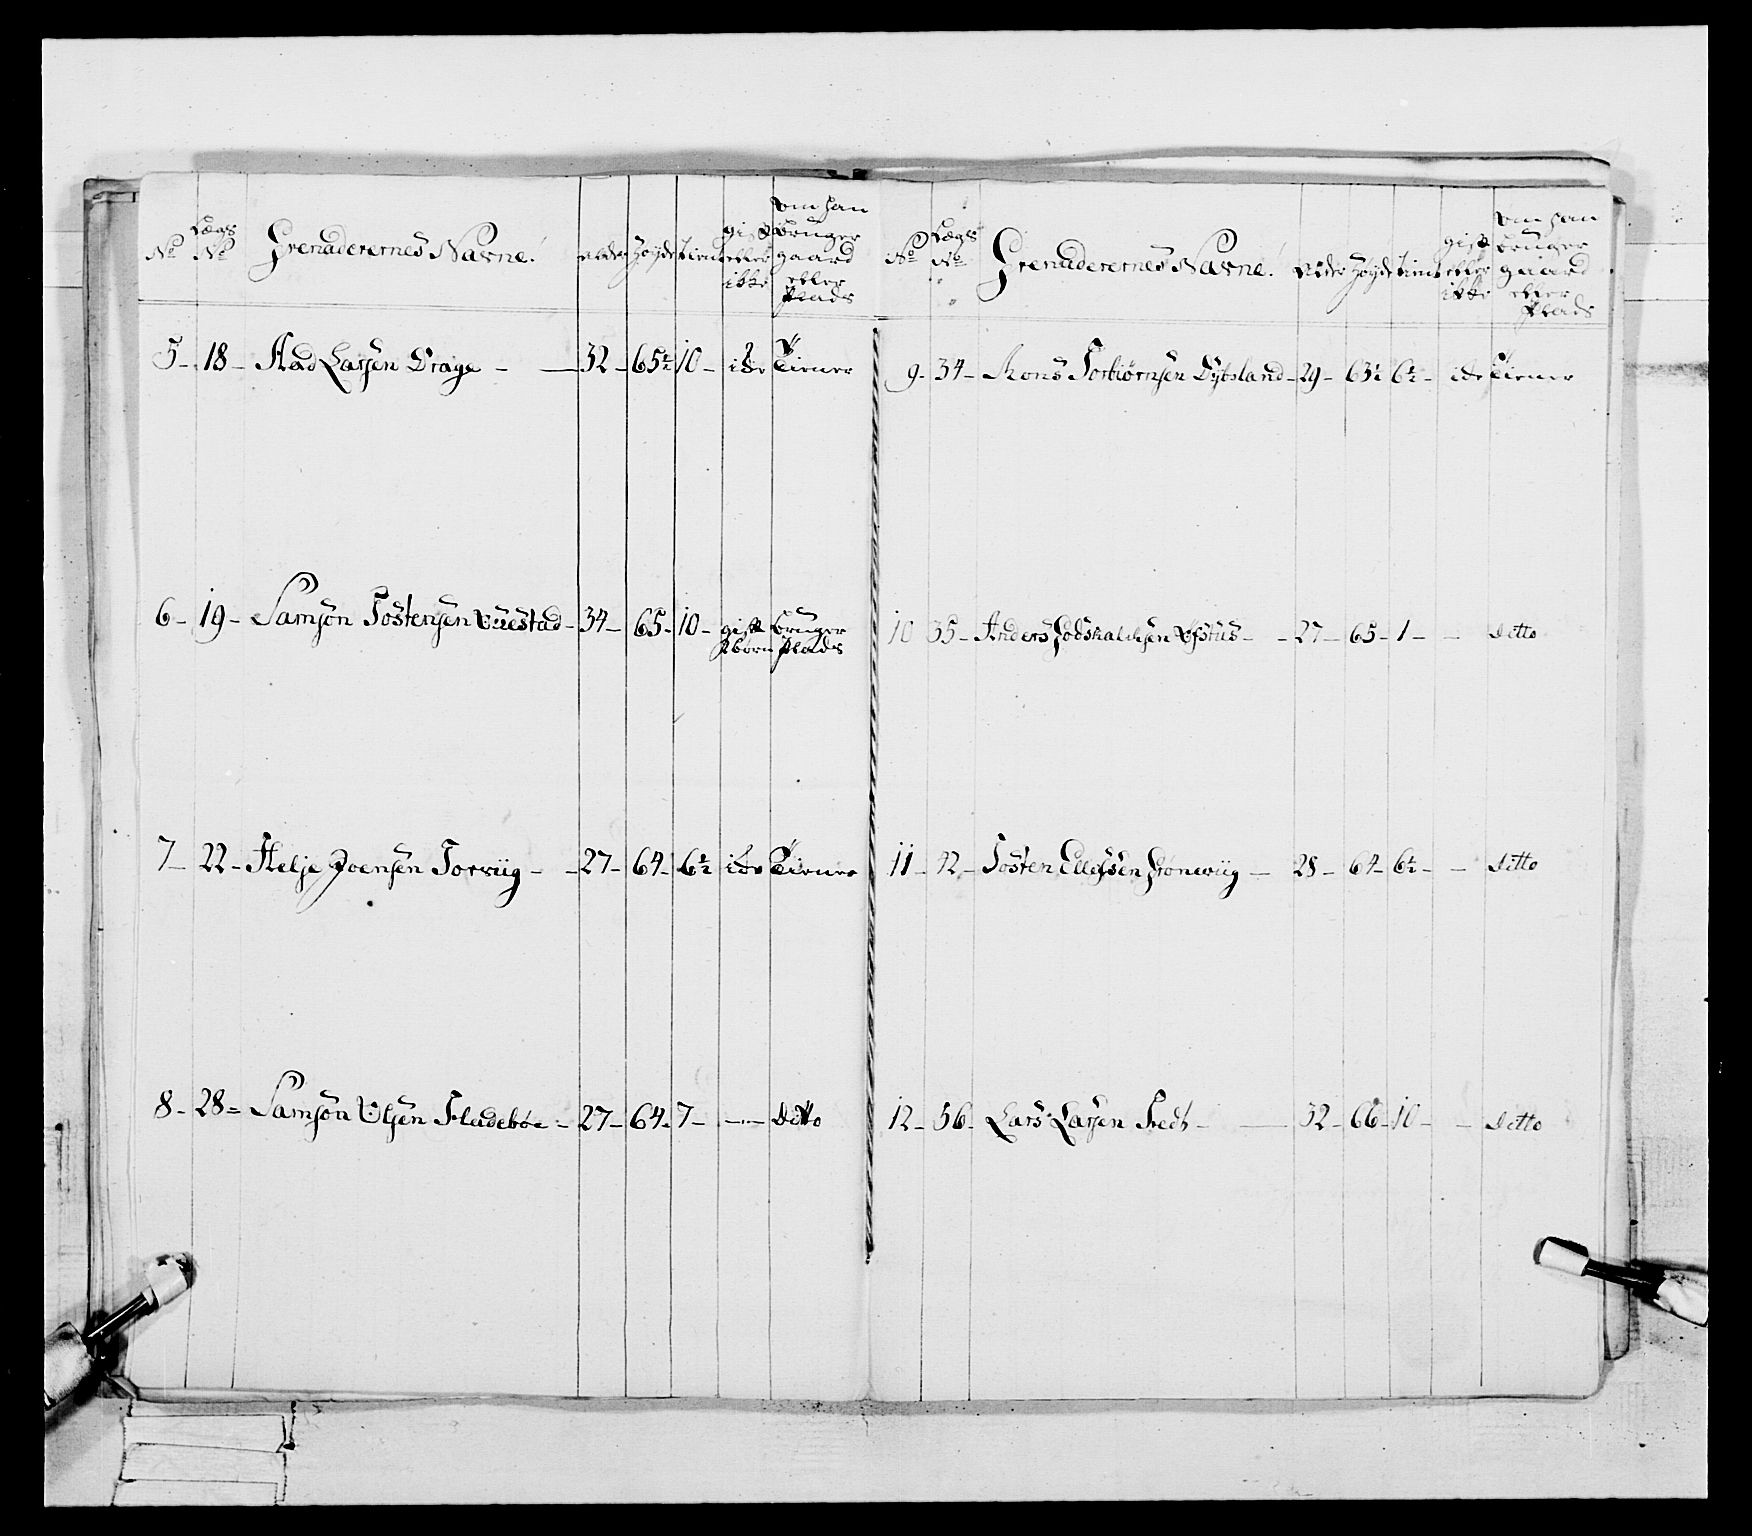 No Lægs No Grenaderernes Navne. alder Høyde tient gift eller ikke om han bruger gaard eller Plads
5 - 18 - Aad Larsen Drage - 32 - 65½ 10 - ide Tiener
6 - 19 - Samson Tostensen - 34 - 65 - 10 - gift bruger
børn Plads
7 - 22 - Helje Joensen Torviig - 27 - 64 - 6½ ide Tiener
8 - 28 - Samson Olsen Fladebøe - 27 - 64 - 7 - - Ditto
No Lægs No Grenaderernes Navne. alder Høyde tient gift eller ikke om han bruger gaard eller Plads
9 - 34 - Mons Torbiørnsen Dybsland - 29 - 63½ 6½ - ide Tiener
10 35 - Anders Godskalchsen - 27 - 65 - 1 - - Ditto
11 - 42 - Tosten Ellefsen - 28 - 64 - 6½ - - Ditto
12 - 56 - Lars Larsen - 32 - 66 - 10 - - Ditto